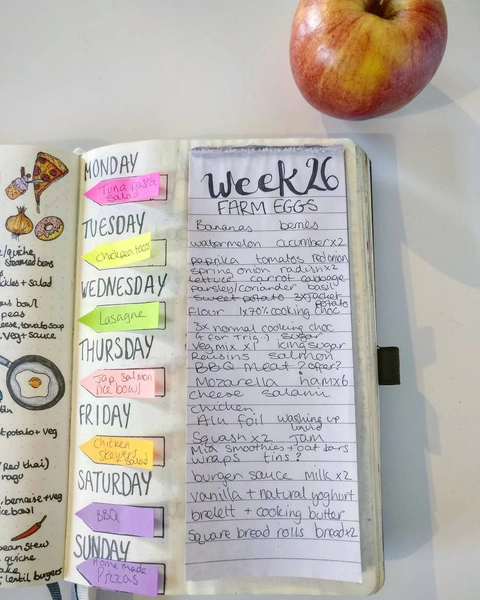 /quiche
steamed buns
+ salad
bowl
peas
cheese, tomato soup
veg + sauce
potato + veg
(red thai)
ragu
bernaise + veg
rice bowl
bean stew
quiche
lentil burgers
MONDAY
Tuna pasta
salad
TUESDAY
Chicken tacos
WEDNESDAY
Lasagne
THURSDAY
Jap. Salmon
rice bowl
FRIDAY
Chicken
skewers
+ salad
SATURDAY
BBQ
SUNDAY
Home made
Pizzas
Week 26
FARM EGGS
Bananas berries
watermelon cucumber x2
paprika tomatos red onion
spring onion radish x2
lettuce carrot cabbage
parsley/coriander basil
sweet potato 3x jacket
potato
flour 1x70% cooking choc
3x normal cooking choc
(4 for Trig.) sugar
veg mix x1 icing sugar
Raisins salmon
BBQ meat ? offer?
Mozarella ham x6
cheese salami
chicken
Alu foil washing up
liquid
Squash x2 Jam
Mia smoothies + oat bars
wraps tins?
burger sauce milk x2
vanilla + natural yoghurt
brelett + cooking butter
square bread rolls bread x2